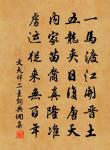 一馬渡江開晉土
五龍夾日復唐天
内家苗裔真隆準
虜運從來無百年
文天祥二王詞典網